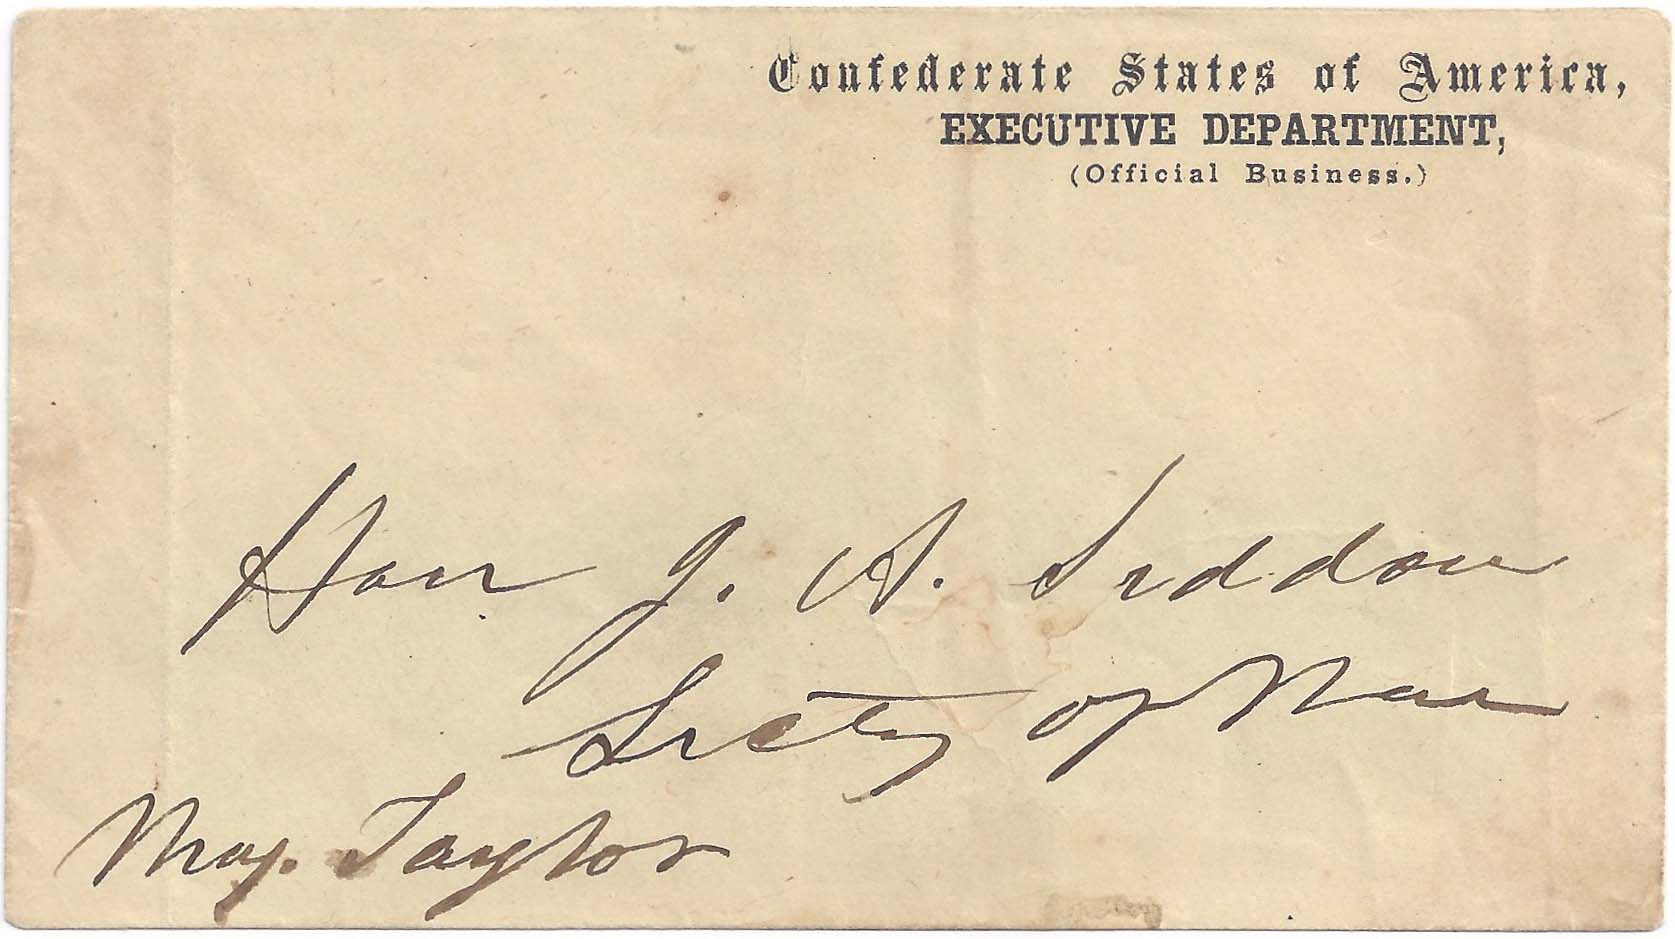 Confederate States of America,
EXECUTIVE DEPARTMENT,
(Official Business.)
Hon J. A. Seddon
Secty of War
Maj. Taylor